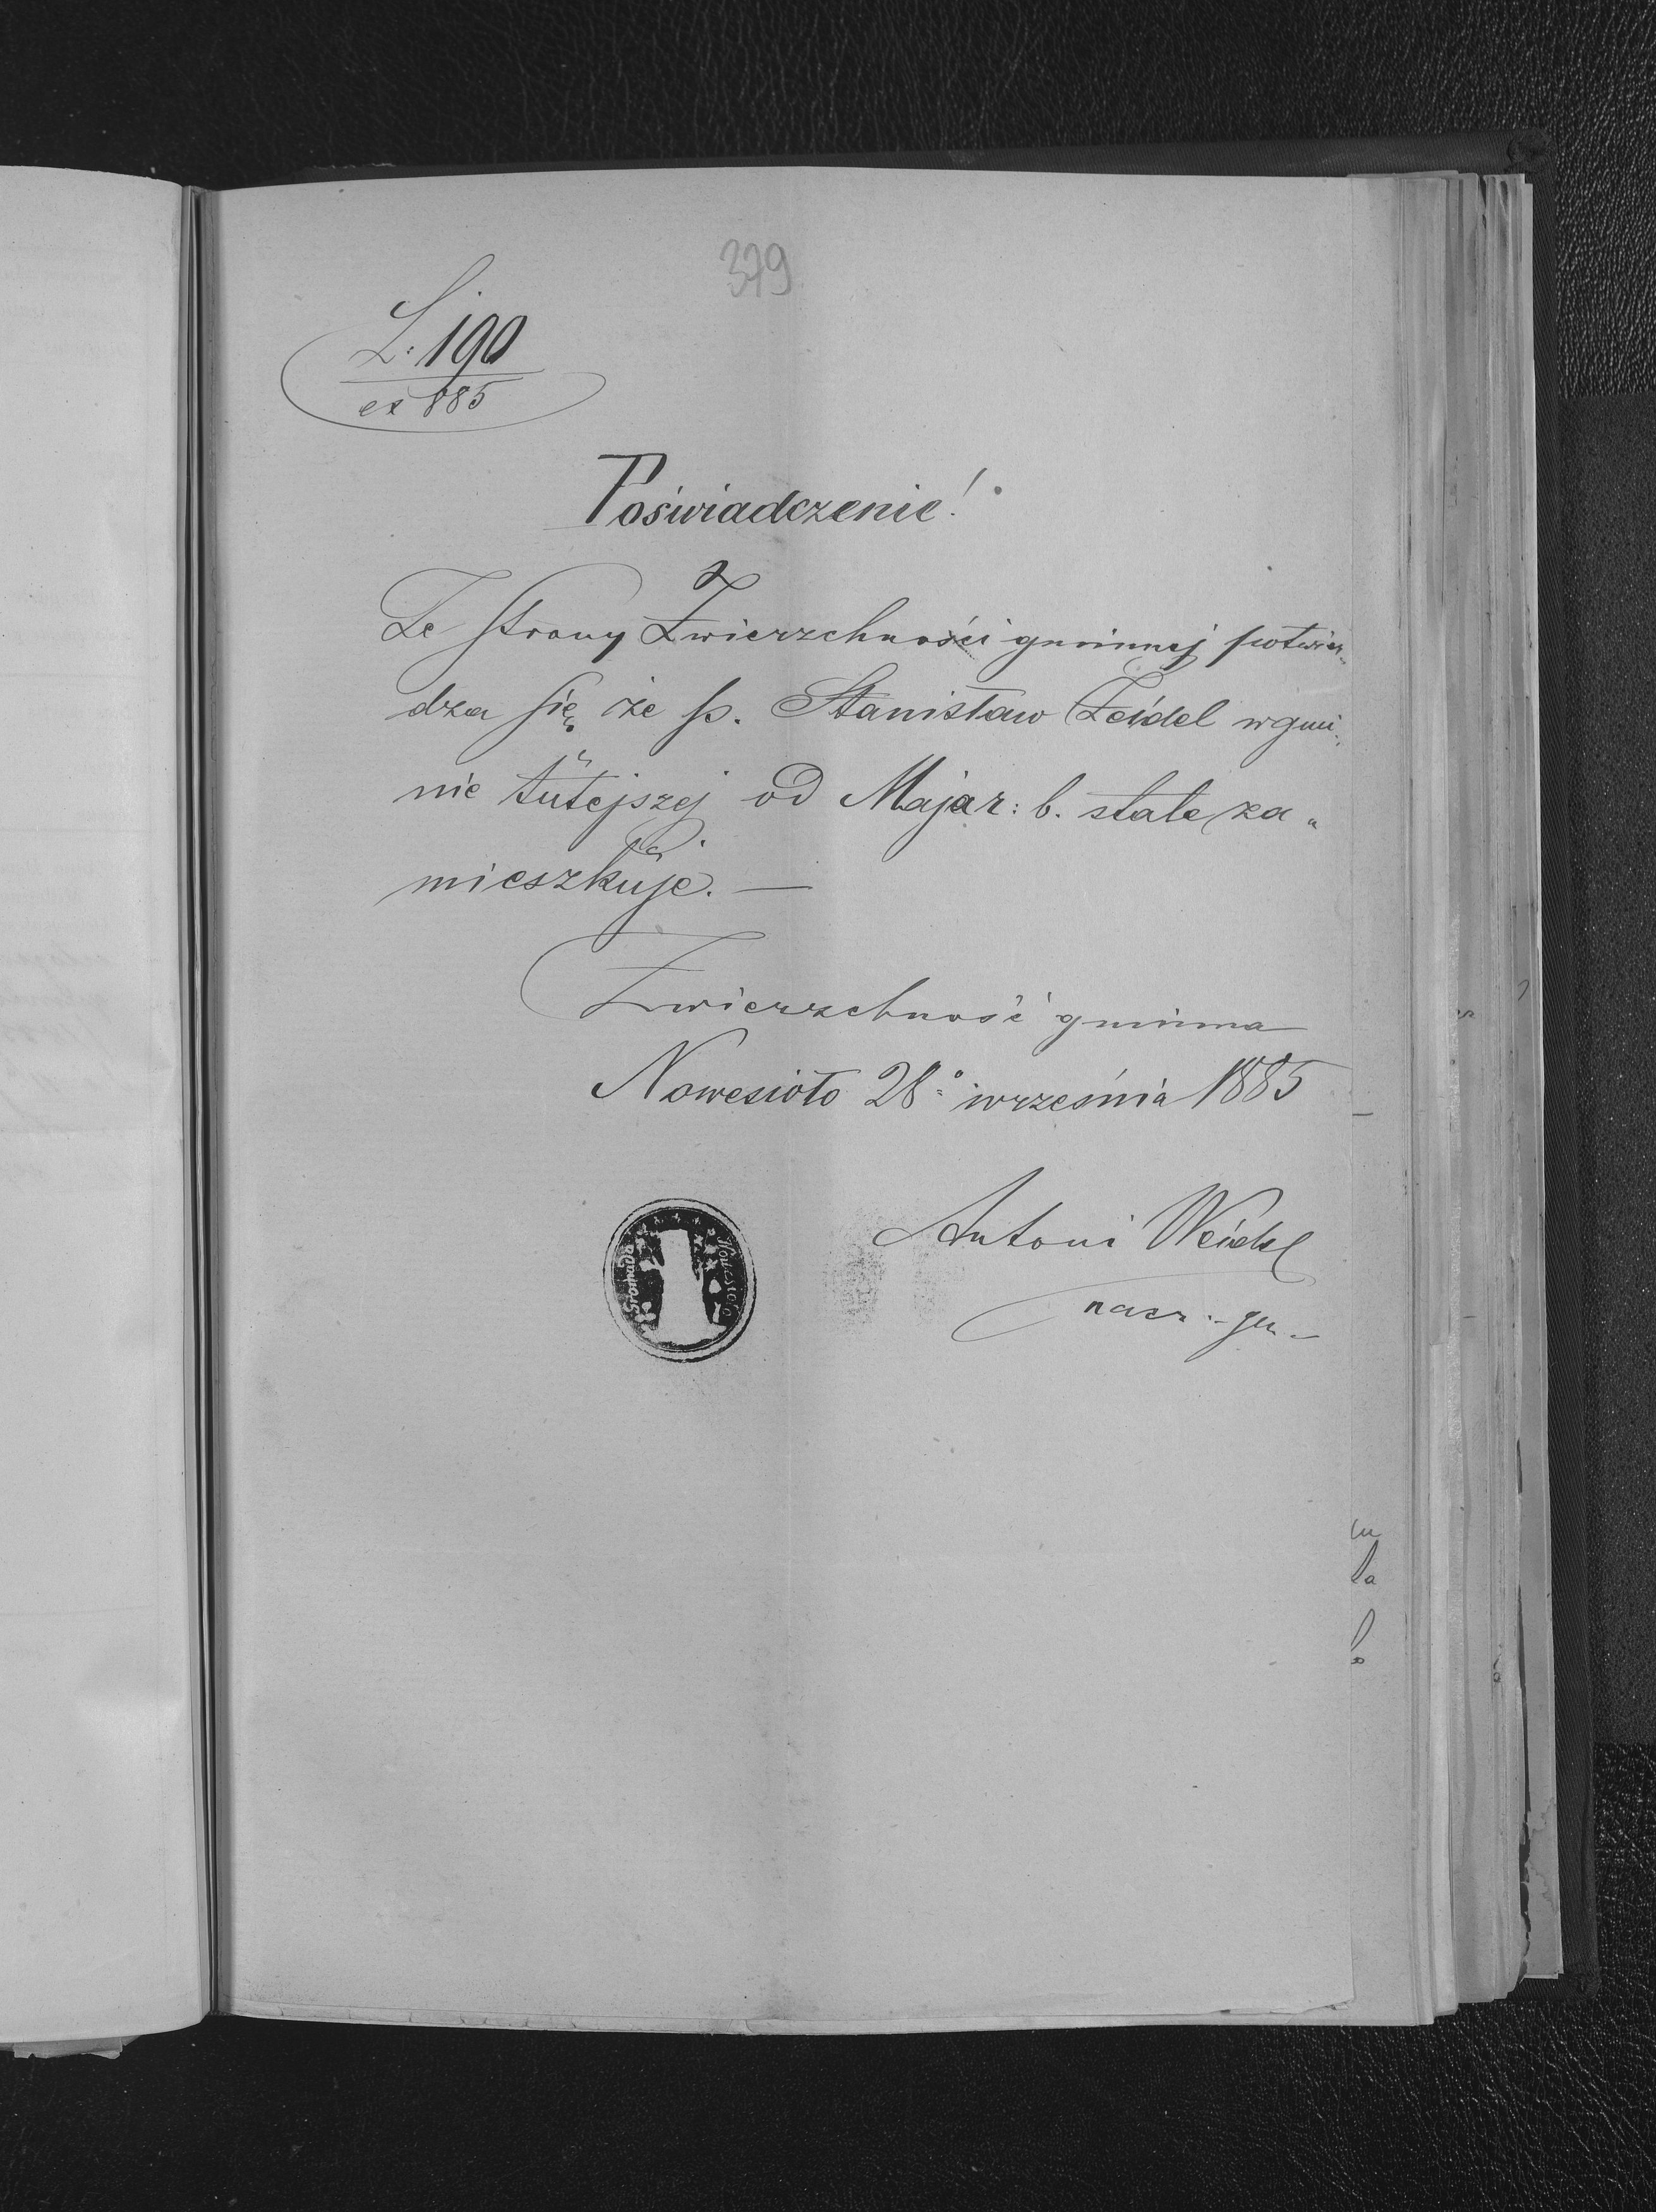 379
L: 190
ex 885
Poświadczenie!
Ze strony Zwierzchności gminnej potwier„
dza się że p. Stanisław Zeidel w gmi„
nie tutejszej od Maja r: b. stale za„
mieszkuje. —
Zwierzchność gminna
Nowesioło 28° września 1885
Antoni Weidel
nacz. gm.
Gromada Nowesioło